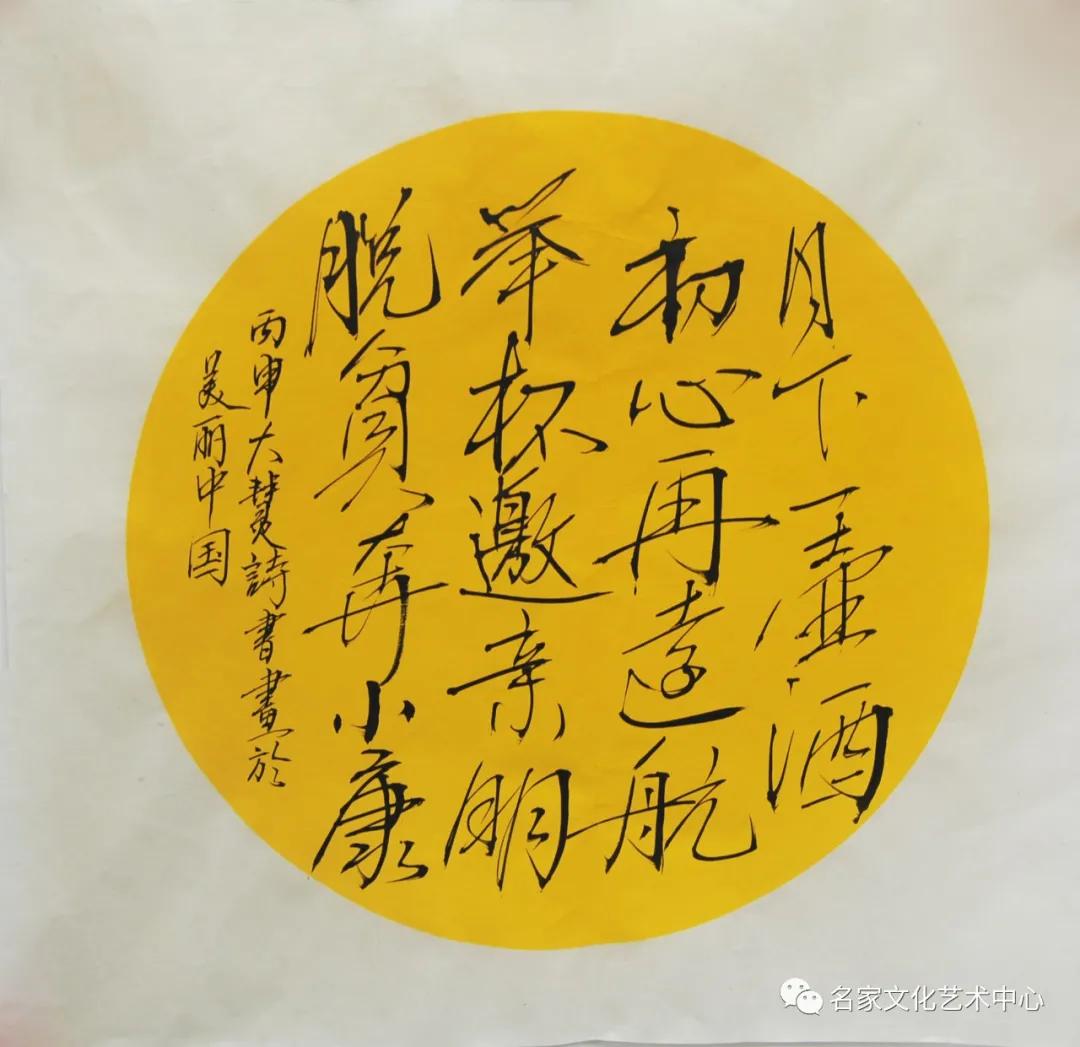 月下一壶酒
初心再远航
举杯邀亲朋
脱贫奔小康
丙申大慧詩書畫於
美丽中国
名家文化艺术中心